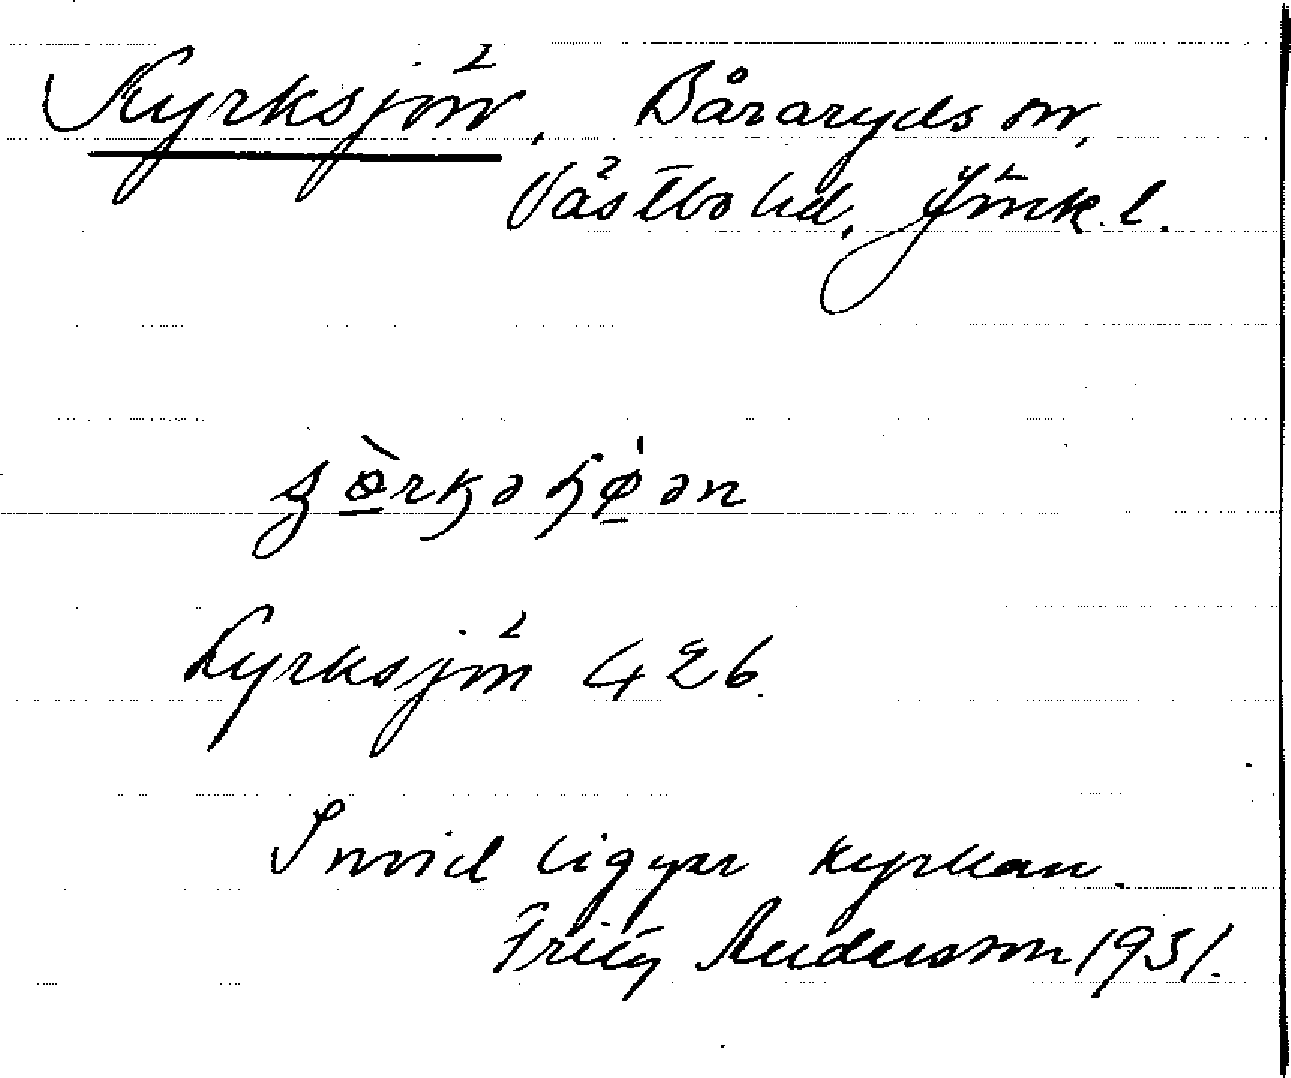 Kyrksjön. Båraryds sn,
Västbo hd, Jönk. l.
Kyrksjön 426.
Invid ligger kyrkan.
Fritz Andersson 1931.